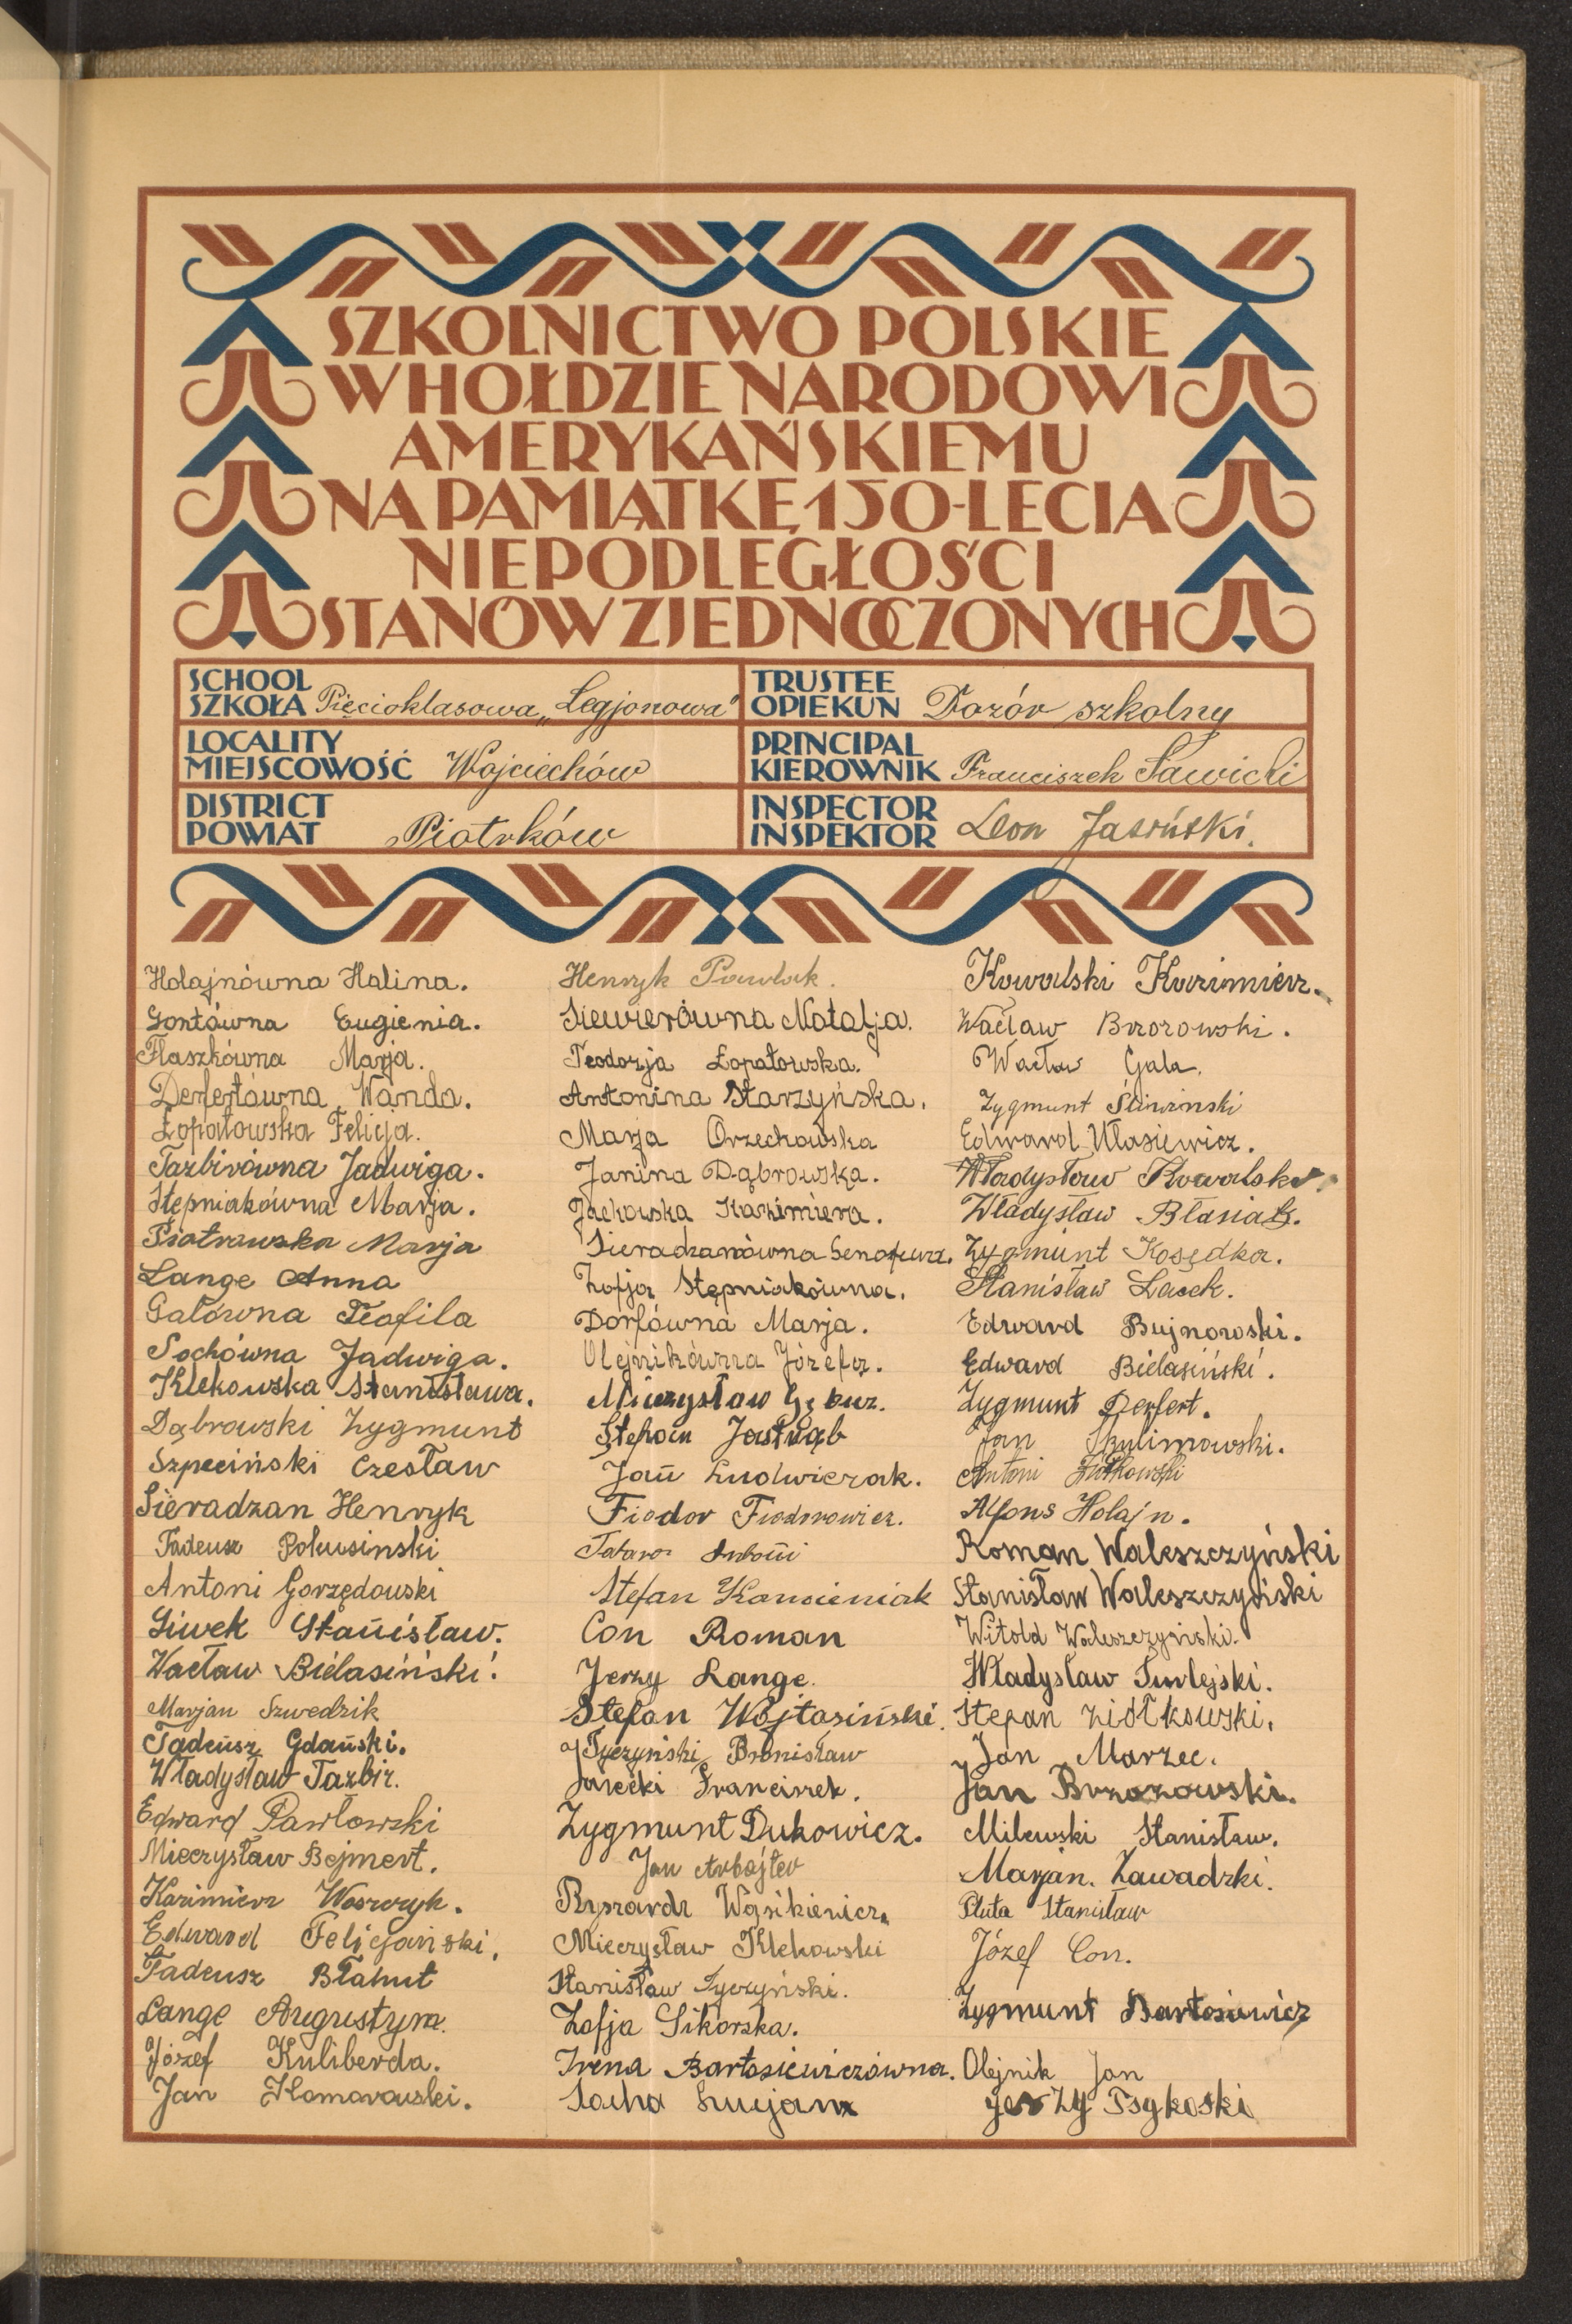 SZKOLNICTWO POLSKIE
W HOŁDZIE NARODOWI
AMERYKAŃSKIEMU
NA PAMIĄTKĘ 150-LECIA
NIEPODLEGŁOŚCI
STANÓW ZJEDNOCZONYCH
SCHOOL
SZKOŁA Pięcioklasowa „Legjonowa"
TRUSTEE
OPIEKUN Dozór szkolny
LOCALITY
MIEJSCOWOŚĆ Wojciechów
PRINCIPAL
KIEROWNIK Franciszek Sawicki
DISTRICT
POWIAT Piotrków
INSPECTOR
INSPEKTOR Leon Jasiński.
Holajnówna Halina.
Gontówna Eugienia.
Flaszkówna Marja.
Derfertówna Wanda.
Łopatowska Felicja.
Tazbirówna Jadwiga.
Stępniakówna Marja.
Piotrowska Marja
Lange Anna
Galówna Teofila
Sochówna Jadwiga.
Klekowska Stanisława.
Dąbrowski Zygmunt
Szpeciński Czesław
Sieradzan Henryk
Tadeusz Pokusinski
Antoni Gorzędowski
Siwek Stanisław.
Wacław Bielasiński.
Marjan Szwedzik
Tadeusz Gdański.
Władysław Tazbir.
Edward Pawłowski
Mieczysław Bejmert.
Kazimierz Wawrzyk.
Edward Felicjański.
Tadeusz Błahut
Lange Augustyn.
Józef Kuliberda.
Jan Komorowski.
Henryk Pawlak.
Siewierówna Natalja.
Teodozja Łopatowska.
Antonina Starzyńska.
Marja Orzechowska
Janina Dąbrowska.
Jackowska Kazimiera.
Sieradzanówna Genofewa.
Zofja Stępniakówna.
Dorfówna Marja.
Olejnikówna Józefa.
Mieczysław Gębuz.
Stefan Jastrząb
Jan Ludwiczak.
Fiodor Fiodorowicz.
Antoni
Stefan Kamieniak
Con Roman
Jerzy Lange.
Stefan Wojtasiński.
Tyczyński Bronisław
Jasecki Franciszek.
Zygmunt Dukowicz.
Jan Arbajter
Ryszard Wąsikiewicz.
Mieczysław Klekowski
Stanisław Tyczyński.
Zofja Sikorska.
Irena Bartosiewiczówna.
Socha Lucjan
Kowalski Kazimierz.
Wacław Brzozowski.
Wacław Gala.
Zygmunt Śliwinski
Edward Ułasiewicz.
Władysław Kowalski.
Władysław Błasiak.
Zygmunt Kosędka.
Stanisław Lasek.
Edward Bujnowski.
Edward Bielasiński.
Zygmunt Derfert.
Jan Skulimowski.
Antoni Ziółkowski
Alfons Holajn.
Roman Waleszczyński
Stanisław Waleszczyński
Witold Waleszczyński.
Władysław Tuvlejski.
Stefan Ziółkowski.
Jan Marzec.
Jan Brzozowski.
Milewski Stanisław.
Marjan. Zawadzki.
Pluta Stanisław
Józef Con.
Zygmunt Bartosiewicz
Olejnik Jan
Jerzy Tsykoski